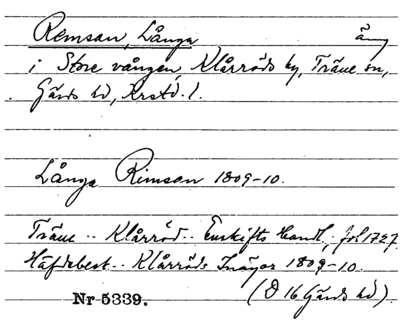 Remsan, Långa äng
i Store vången, Klårröds by, Träne sn,
Gärds hd, Krstd. l.
Långa Rimsan 1809-10.
Träne .. Klårröd .. Enskifts Handl., fol 1727
Häfdebest .. Klårröds Inägor 1809-10.
Nr 5339. (D 16 Gärds hd).